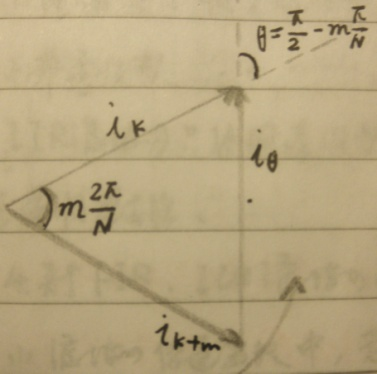 θ=π/2-mπ/N
i_k
i_θ
m2π/N
i_{k+m}